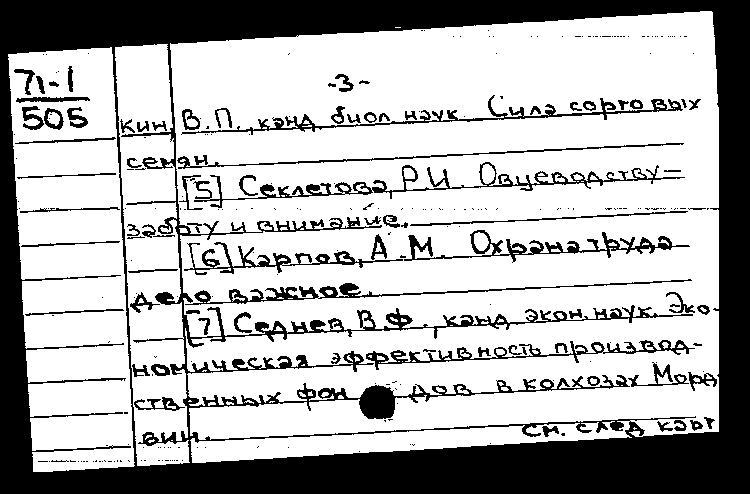 71-1
505
-3-
кин, В.П., канд. биол. наук Сила сортовых
семян.
[5] Секлетова, Р.И. Овцеводству-
заботу и внимание.
[6] Карпов, А.М. Охрана труда
дело важное.
[7] Седнев, В.Ф., канд. экон. наук. Эко-
номическая эффективность производ-
ственных фон дов в колхозах Морд
вии.
см. след карт